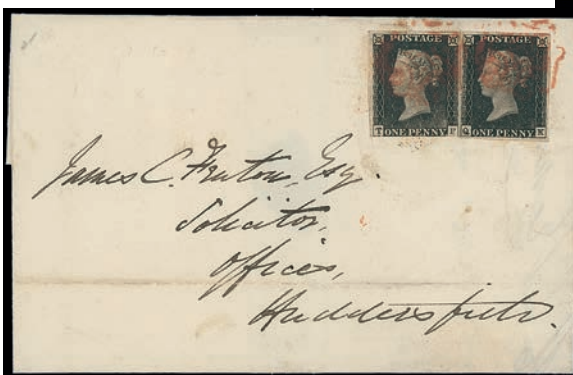 POSTAGE POSTAGE
ONE PENNY ONE PENNY
James C. Fenton, Esq.
Solicitor,
Offices,
Huddersfield.